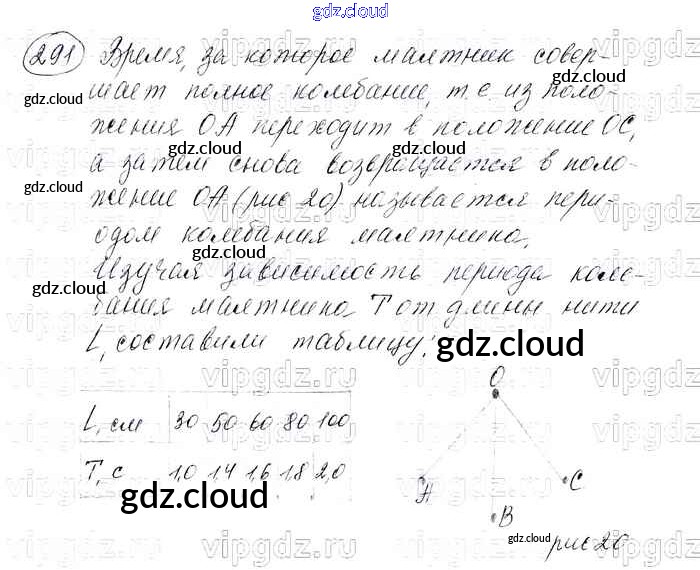 gdz.cloud
291 Время, за которое маятник совер-
шает полное колебание, т.е из поло-
жения ОА переходит в положение ОС,
а затем снова возвращается в поло-
жение ОА (рис 20) называется пери-
одом колебания маятника.
Изучая зависимость периода коле-
бания маятника Т от длины нити
L, составили таблицу:
gdz.cloud
L, см 30 50 60 80 100
Т, с 1,0 1,4 1,6 1,8 2,0
O
A
C
B
рис 20
gdz.cloud
gdz.cloud
gdz.cloud
gdz.cloud
gdz.cloud
gdz.cloud
gdz.cloud